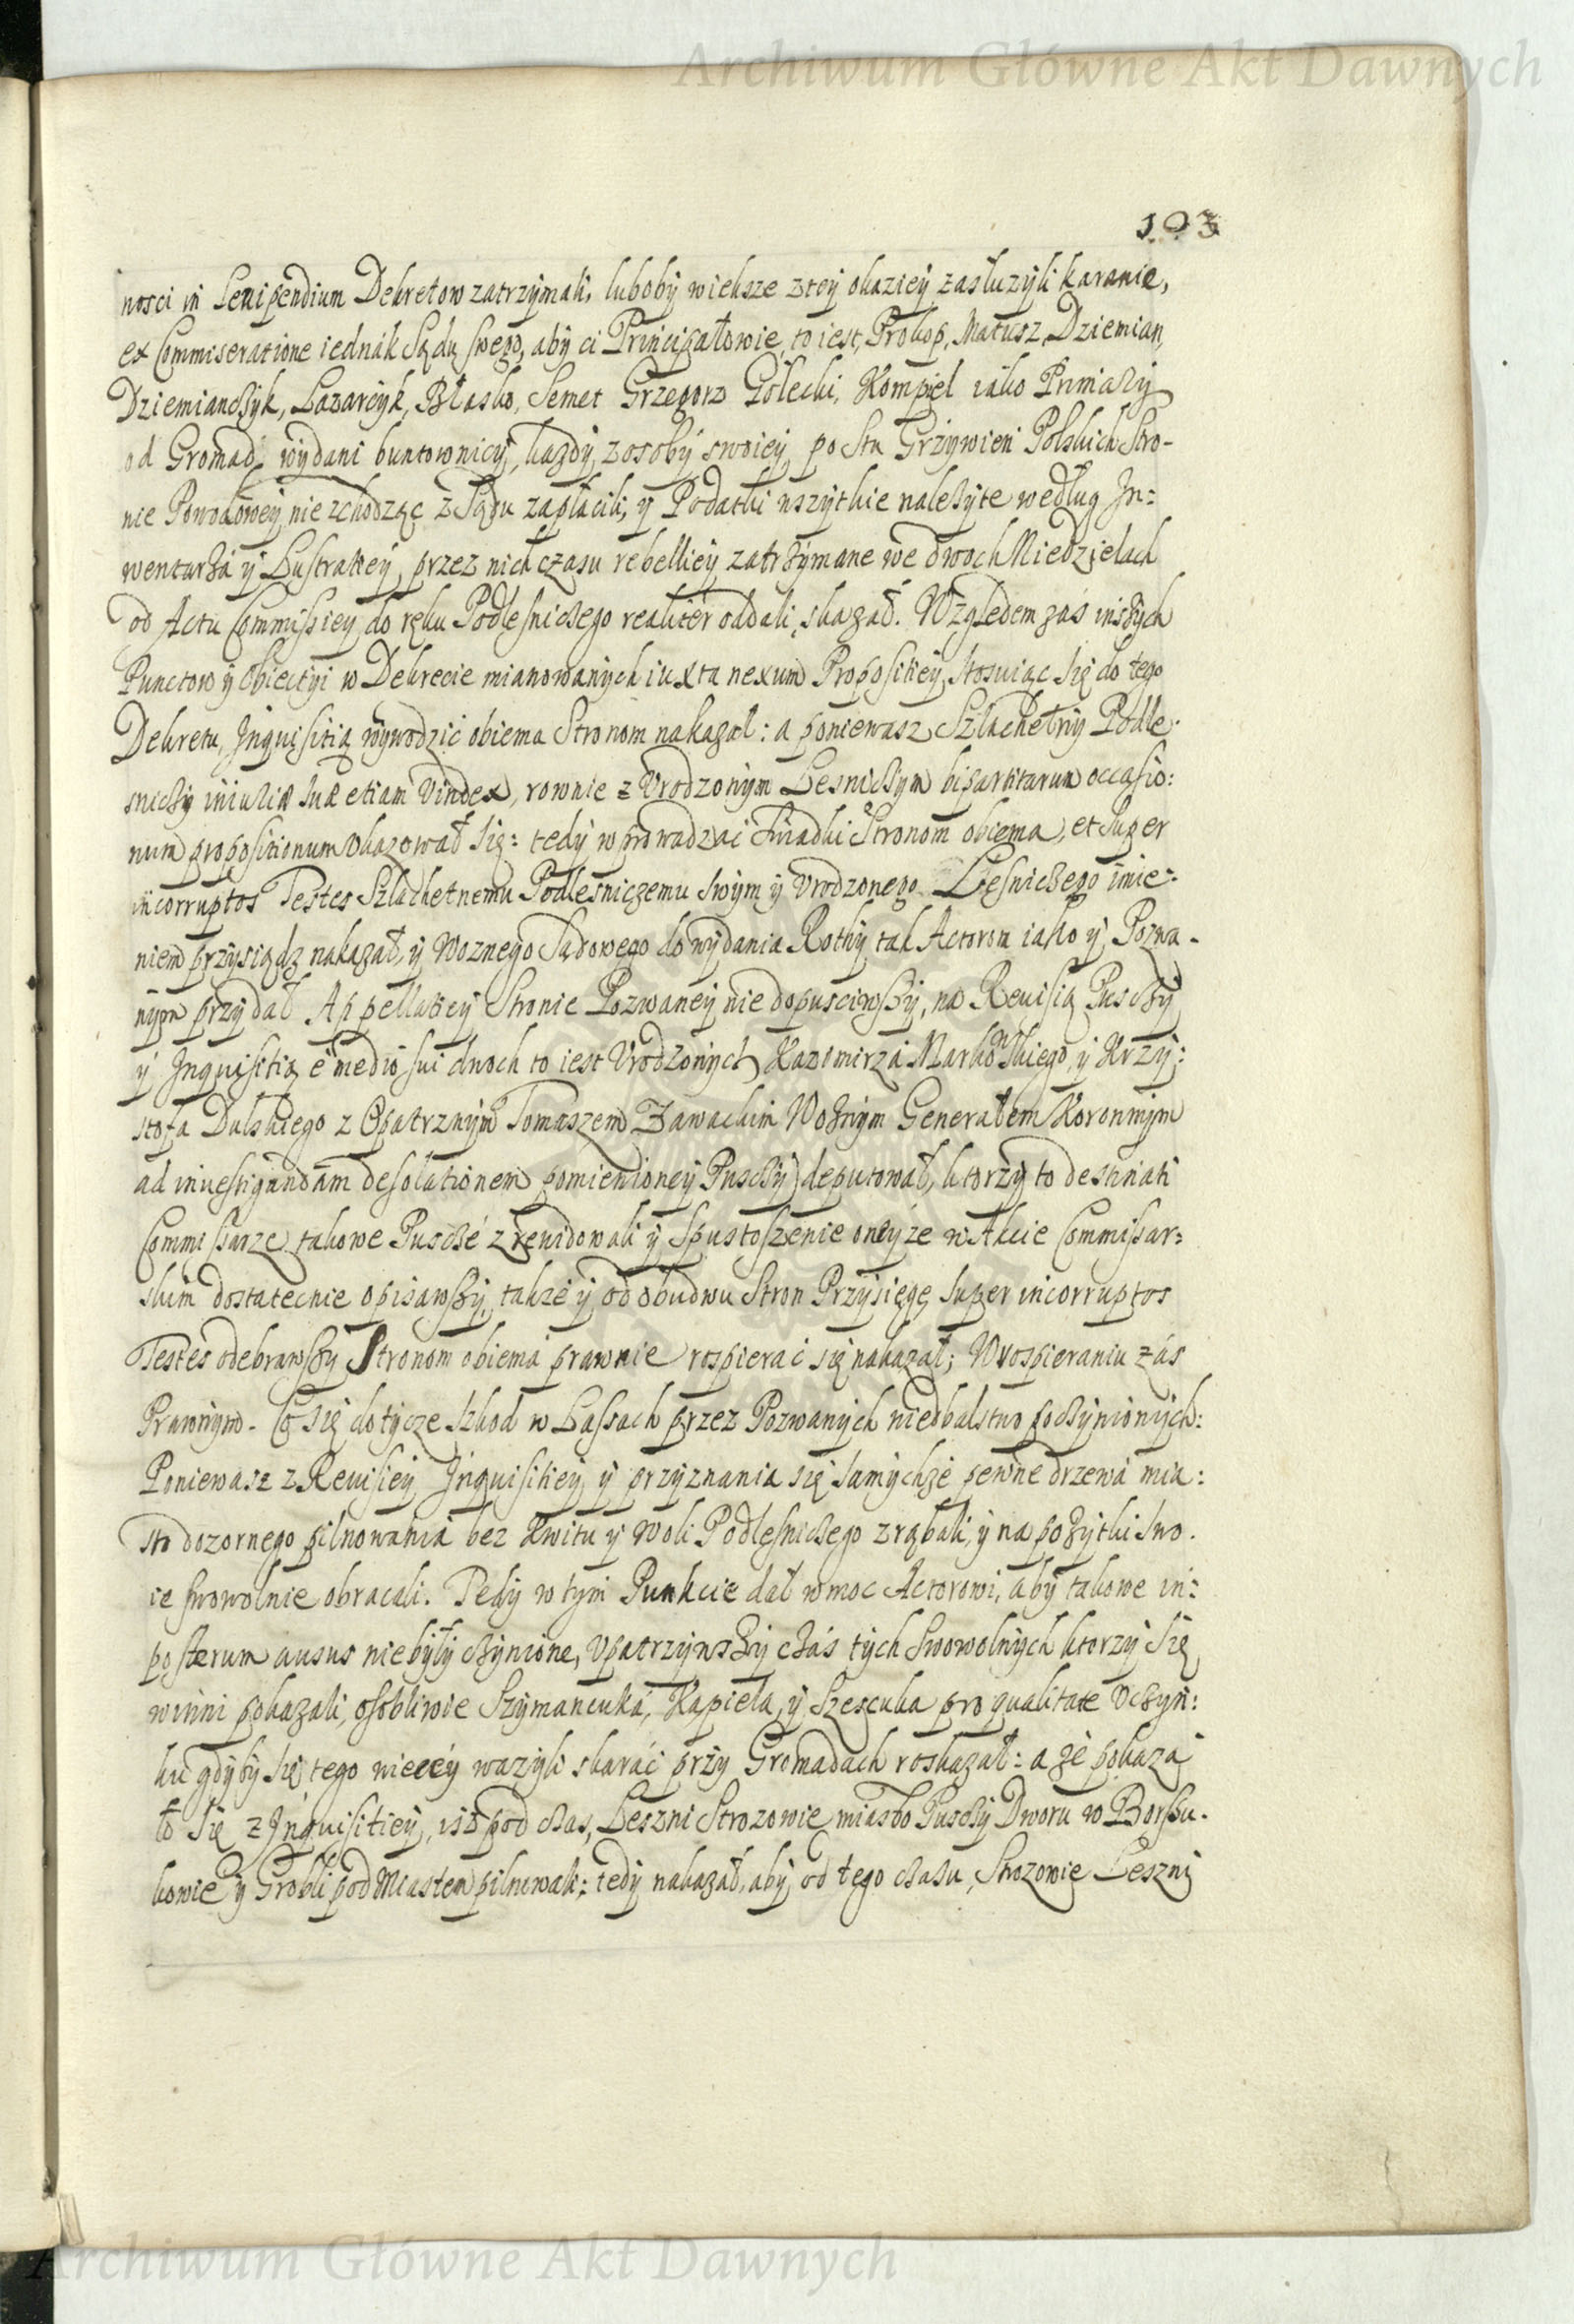 Archiwum Główne Akt Dawnych
103
nosci in Levipendium Dekretow zatrzymali, luboby wieksze z tey okaziey zasłuzyli karanie,
ex Commiseratione iednak Sądu swego, aby ci Principałowie, to iest, Prokop, Matusz, Dziemian,
Dziemianczyk, Łazarczyk, Błasko, Semet Grzegorz Golecki, Kompiel iako Primaszy
od Gromad wydani buntownicy, kazdy z osoby swoiey po Stu Grzywien Polskich Stro-
nie Powodowey nie zchodząc z Sądu zapłacili, y Podatki wszytkie nalezyte według In:
wentarza y Lustratiey przez nich czasu rebelliey zatrzymane we dwoch Niedzielach
od Actu Commissiey do ręku Podlesniczego realiter oddali, skazał. Względem zas inszych
Punctow y Obiectyi w Dekrecie mianowanych iuxta nexum Propositiey, stosuiąc się do tego
Dekretu, Inquisitią wywodzić obiema Stronom nakazał: a poniewasz Szlachetny Podle-
sniczy iniuriæ suæ etiam Vindex, rownie z Vrodzonym Lesniczym bipartitarum occasio:
num propositionum okazował się: tedy wprowadzac Swiadki Stronom obiema, et super
incorruptos Testes Szlachetnemu Podlesniczemu swym y Vrodzonego Lesniczego imie:
niem przysiądz nakazał, y Woznego Sądowego do wydania Rothy tak Actorom iako y Pozwa-
nym przydał Appellatiey Stronie Pozwaney nie dopusciwszy, na Reuisią Puszczy
y Inquisitią e medio sui dwoch to iest Vrodzonych Kazimirza Markowskiego, y Krzy:
stofa Dulskiego z Opatrznym Tomaszem Zawackim Woznym Generałem Koronnym
ad inuestigandam desolationem pomienioney Puszczy deputował, ktorzy to destinati
Commissarze takowe Puszcze zrewidowali y Spustoszenie oneyze w Akcie Commissar:
skim dostatecnie opisawszy, takze y od obudwu Stron Przysięgę super incorruptos
Testes odebrawszy Stronom obiema prawnie rospierać się nakazał; W rospieraniu zás
Prawnym. Co się dotycze szkod w Lassach przez Pozwanych niedbalstwo poczynionych:
Poniewasz z Reuisiey Inquisitiey y przyznania się samychze pewne drzewa mia:
sto dozornego pilnowania bez Kwitu y Woli Podlesniczego zrąbali, y na pozytki swo.
ie swowolnie obracali. Tedy w tym Punkcie dał w moc Actorowi, aby takowe in:
posterum ausus niebyły czynione, Vpatrzywszy czas tych Swowolnych ktorzy się
winni pokazali, osobliwie Szymancuka, Kapiela, y Szescuka pro qualitate Vczyn:
ku gdyby się tego wiecey wazyli skarać przy Gromadach roskazał: a ze pokaza
ło się z Inquisitiey, isz pod czas, Leszni Strozowie miasto Puszczy Dworu w Borsu.
kowie y Grobli pod Miastem pilnowali; tedy nakazał, aby od tego czasu, Strozowie Leszni
Archiwum Główne Akt Dawnych